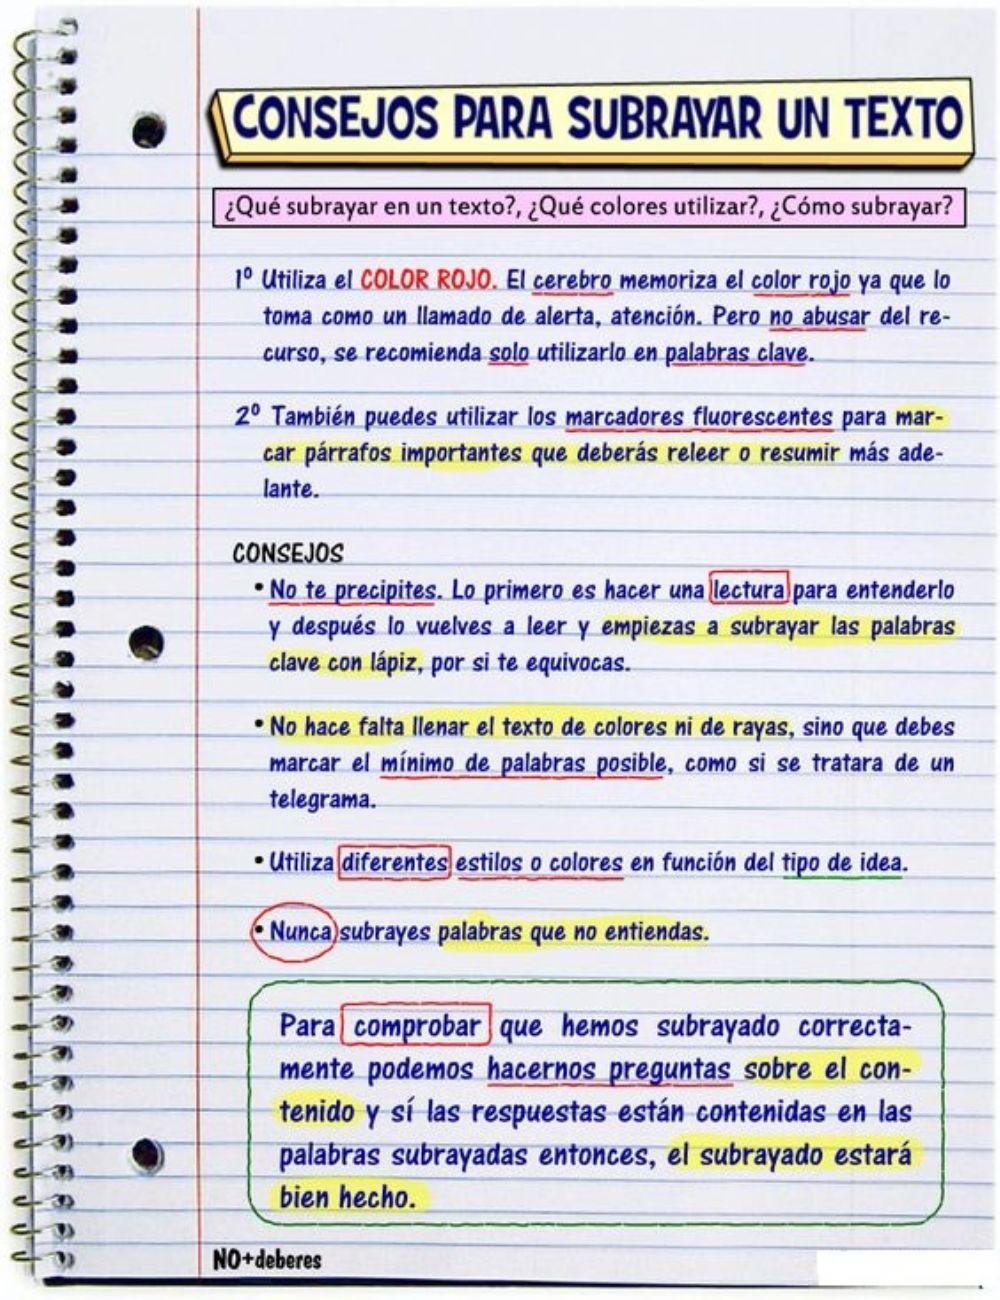 CONSEJOS PARA SUBRAYAR UN TEXTO
¿Qué subrayar en un texto?, ¿Qué colores utilizar?, ¿Cómo subrayar?
1º Utiliza el COLOR ROJO. El cerebro memoriza el color rojo ya que lo
toma como un llamado de alerta, atención. Pero no abusar del re-
curso, se recomienda solo utilizarlo en palabras clave.
2º También puedes utilizar los marcadores fluorescentes para mar-
car párrafos importantes que deberás releer o resumir más ade-
lante.
CONSEJOS
• No te precipites. Lo primero es hacer una lectura para entenderlo
y después lo vuelves a leer y empiezas a subrayar las palabras
clave con lápiz, por si te equivocas.
• No hace falta llenar el texto de colores ni de rayas, sino que debes
marcar el mínimo de palabras posible, como si se tratara de un
telegrama.
• Utiliza diferentes estilos o colores en función del tipo de idea.
• Nunca subrayes palabras que no entiendas.
Para comprobar que hemos subrayado correcta-
mente podemos hacernos preguntas sobre el con-
tenido y sí las respuestas están contenidas en las
palabras subrayadas entonces, el subrayado estará
bien hecho.
NO+deberes